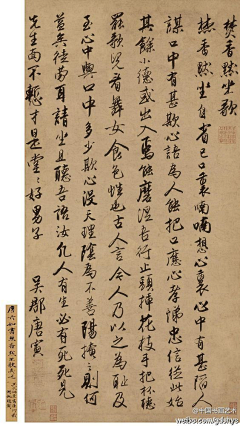 焚香默坐歌
焚香默坐自省己口裏喃喃想心裏心中有甚陷人
謀口中有甚欺心語為人能把口應心孝悌忠信從此始
其餘小德或出入焉能磨涅吾行止頭插花枝手把杯聽
罷歌童看舞女食色性也古人言今人乃以之為恥及
至心中與口中多少欺心沒天理陰為不善陽掩之則何
益矣徒勞耳請坐且聽吾語汝凡人有生必有死死見
先生面不慚才是堂々好男子
吳郡唐寅
@中国书画艺术
weibo.com/gdsnys